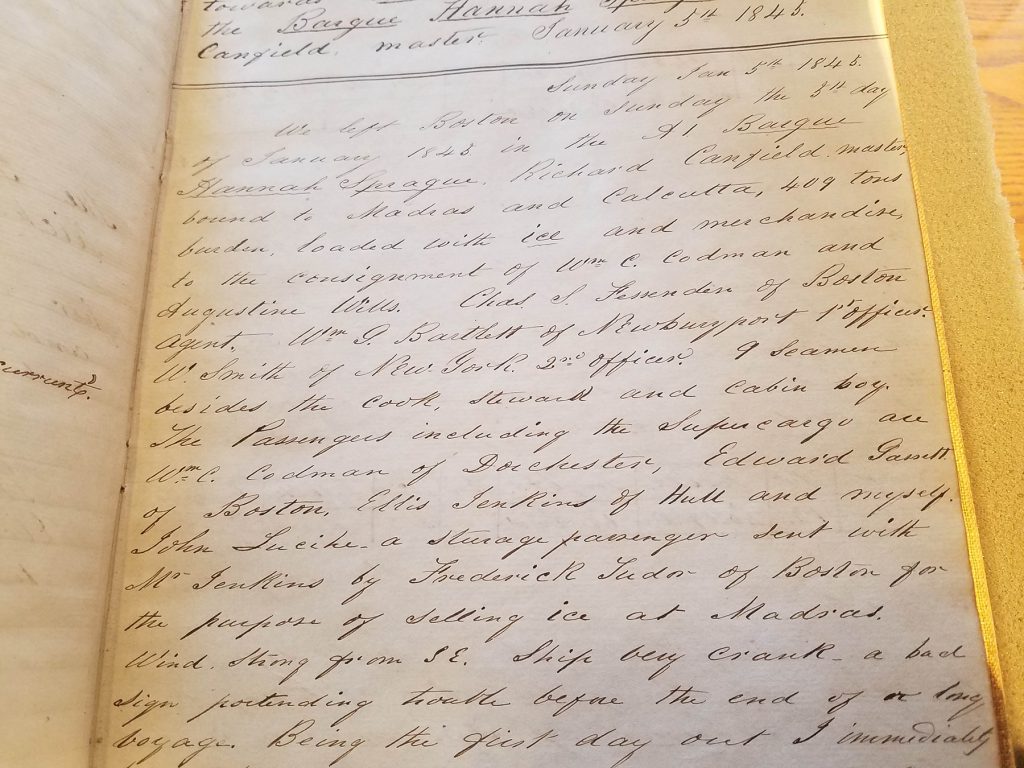 towards
the Barque Hannah
Canfield. master. January 5th 1845.
Sunday Jan 5th 1845.
We left Boston on Sunday the 5th day
of January 1845 in the A1 Barque
Hannah Sprague. Richard Canfield. master,
bound to Madras and Calcutta, 409 tons
burden, loaded with ice and merchandise,
to the consignment of Wm C. Codman and
Augustine Wills. Chas S. Fessenden of Boston
Agent. Wm G. Bartlett of Newburyport 1st officer.
W. Smith of New York. 2nd officer. 9 Seamen
besides the cook, steward and cabin boy.
The Passengers including the Supercargo are
Wm C. Codman of Dorchester, Edward Garrett
of Boston, Ellis Jenkins of Hull and myself.
John - a sterage passenger sent with
Mr Jenkins by Frederick Tudor of Boston for
the purpose of selling ice at Madras.
Wind. strong from SE. Ship very crank - a bad
sign portending trouble before the end of or long
voyage. Being the first day out I immediately